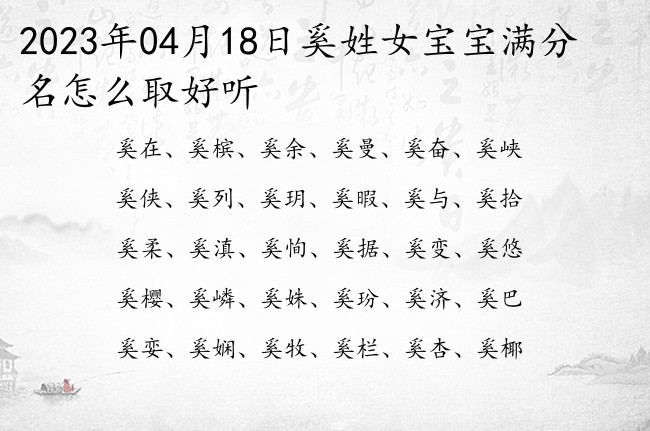 2023年04月18日奚姓女宝宝满分
名怎么取好听
奚在、奚槟、奚余、奚曼、奚奋、奚峡
奚侠、奚列、奚玥、奚暇、奚与、奚拾
奚柔、奚滇、奚恂、奚据、奚变、奚悠
奚樱、奚嶙、奚姝、奚玢、奚济、奚巴
奚娈、奚娴、奚牧、奚栏、奚杏、奚椰